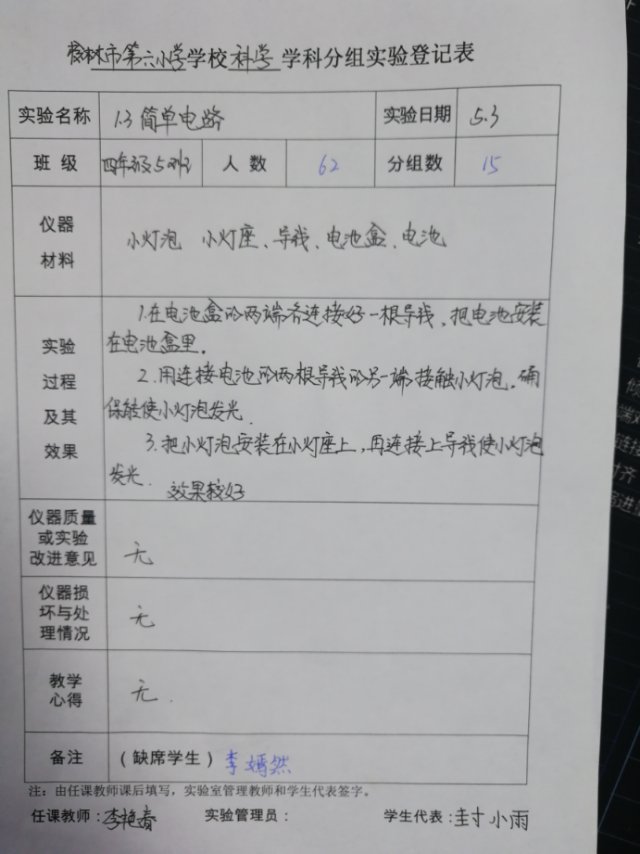 榆林市第六小学学校科学学科分组实验登记表
实验名称 1.3简单电路 实验日期 5.3
班 级 四年级5班 人 数 62 分组数 15
仪器
材料
小灯泡 小灯座、导线、电池盒、电池
实验
过程
及其
效果
1.在电池盒的两端各连接好一根导线，把电池安装
在电池盒里。
2.用连接电池的两根导线的另一端接触小灯泡，确
保能使小灯泡发光.
3.把小灯泡安装在小灯座上，再连接上导线使小灯泡
发光. 效果较好
仪器质量
或实验
改进意见
无
仪器损
坏与处
理情况
无
教学
心得
无.
备注 （缺席学生）李嫣然
注：由任课教师课后填写，实验室管理教师和学生代表签字。
任课教师：李艳春 实验管理员： 学生代表：封小雨